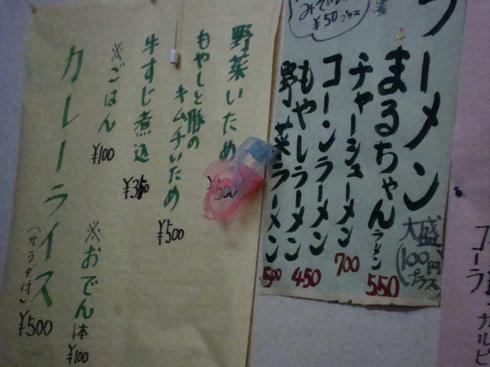 ラーメン
大盛(100円プラス)
まるちゃんラーメン 550
チャーシューメン 700
コーンラーメン
もやしラーメン 450
野菜ラーメン 500
¥50プラス
野菜いため ¥500
もやしと豚の
キムチいため ¥500
牛すじ煮込 ¥350
※ごはん ¥100
※おでん 1本 ¥100
カレーライス(サラダ付) ¥500
コーラ
カルピ